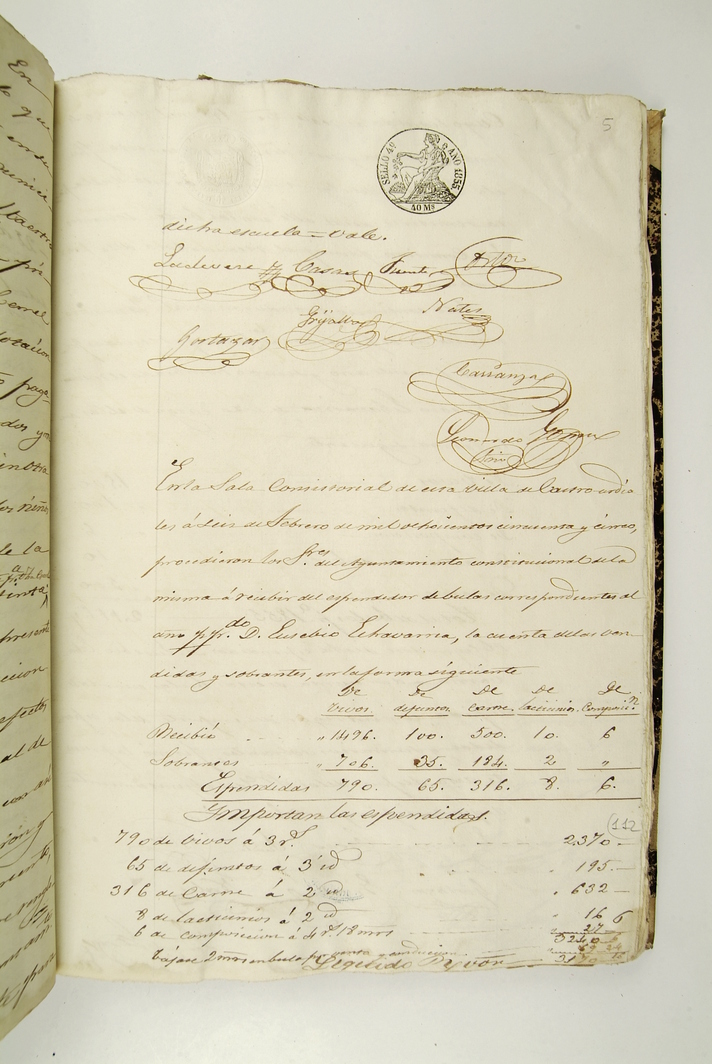 5
SELLO 4º AÑO 1855
40 Ms
dicha escuela = Vale.
Ladevese Casas Fuente
Grijalba Nates
Gortazar
Carranza
Leonardo
Srio
En la Sala Consistorial de esta Villa de Castro urdia
les á seis de Febrero de mil ochocientos cincuenta y cinco,
procedieron los Sres del Ayuntamiento constitucional de la
misma á recibir del espendedor de bulas correspondientes al
año D. Eusebio Echavarria, la cuenta de las ven-
didas y sobrantes, en la forma siguiente
De De De De De
Vivos difuntos Carne lacticinios Composicn
Recibió " 1496. 100. 500. 10. 6
Sobrantes " 706. 35. 184. 2 "
Espendidas 790. 65. 316. 8. 6.
Ymportan las espendidas.
112
790 de Vivos á 3 rs 2.370
65 de difuntos á 3 id 195
316 de Carne á 2 id " 632
8 de lacticinios á 2 id " 16
6 de composicion á 4 rs 18 mrs 27
bájase 2 mrs en bula por